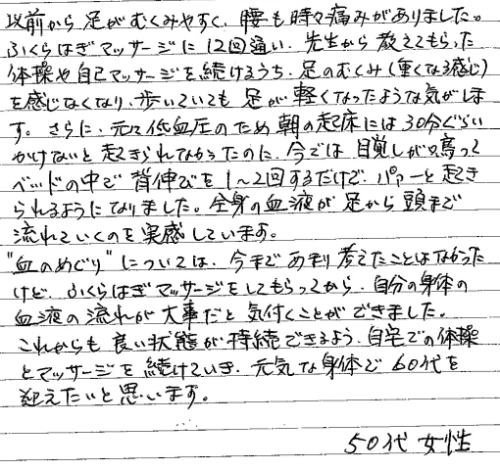 以前から足がむくみやすく、腰も時々痛みがありました。
ふくらはぎマッサージに12回通い、先生から教えてもらった
体操や自己マッサージを続けるうち、足のむくみ(重くなる感じ)
を感じなくなり、歩いていても足が軽くなったような気がしま
す。さらに、元々低血圧のため朝の起床には30分ぐらい
かけないと起きられなかったのに、今では目覚しが鳴って
ベッドの中で背伸びを1〜2回するだけで、パァーと起き
られるようになりました。全身の血液が足から頭まで
流れていくのを実感しています。
"血のめぐり"については、今まであまり考えたことはなかった
けど、ふくらはぎマッサージをしてもらってから、自分の身体の
血液の流れが大事だと気付くことができました。
これからも良い状態が持続できるよう、自宅での体操
とマッサージを続けていき、元気な身体で60代を
迎えたいと思います。
50代女性